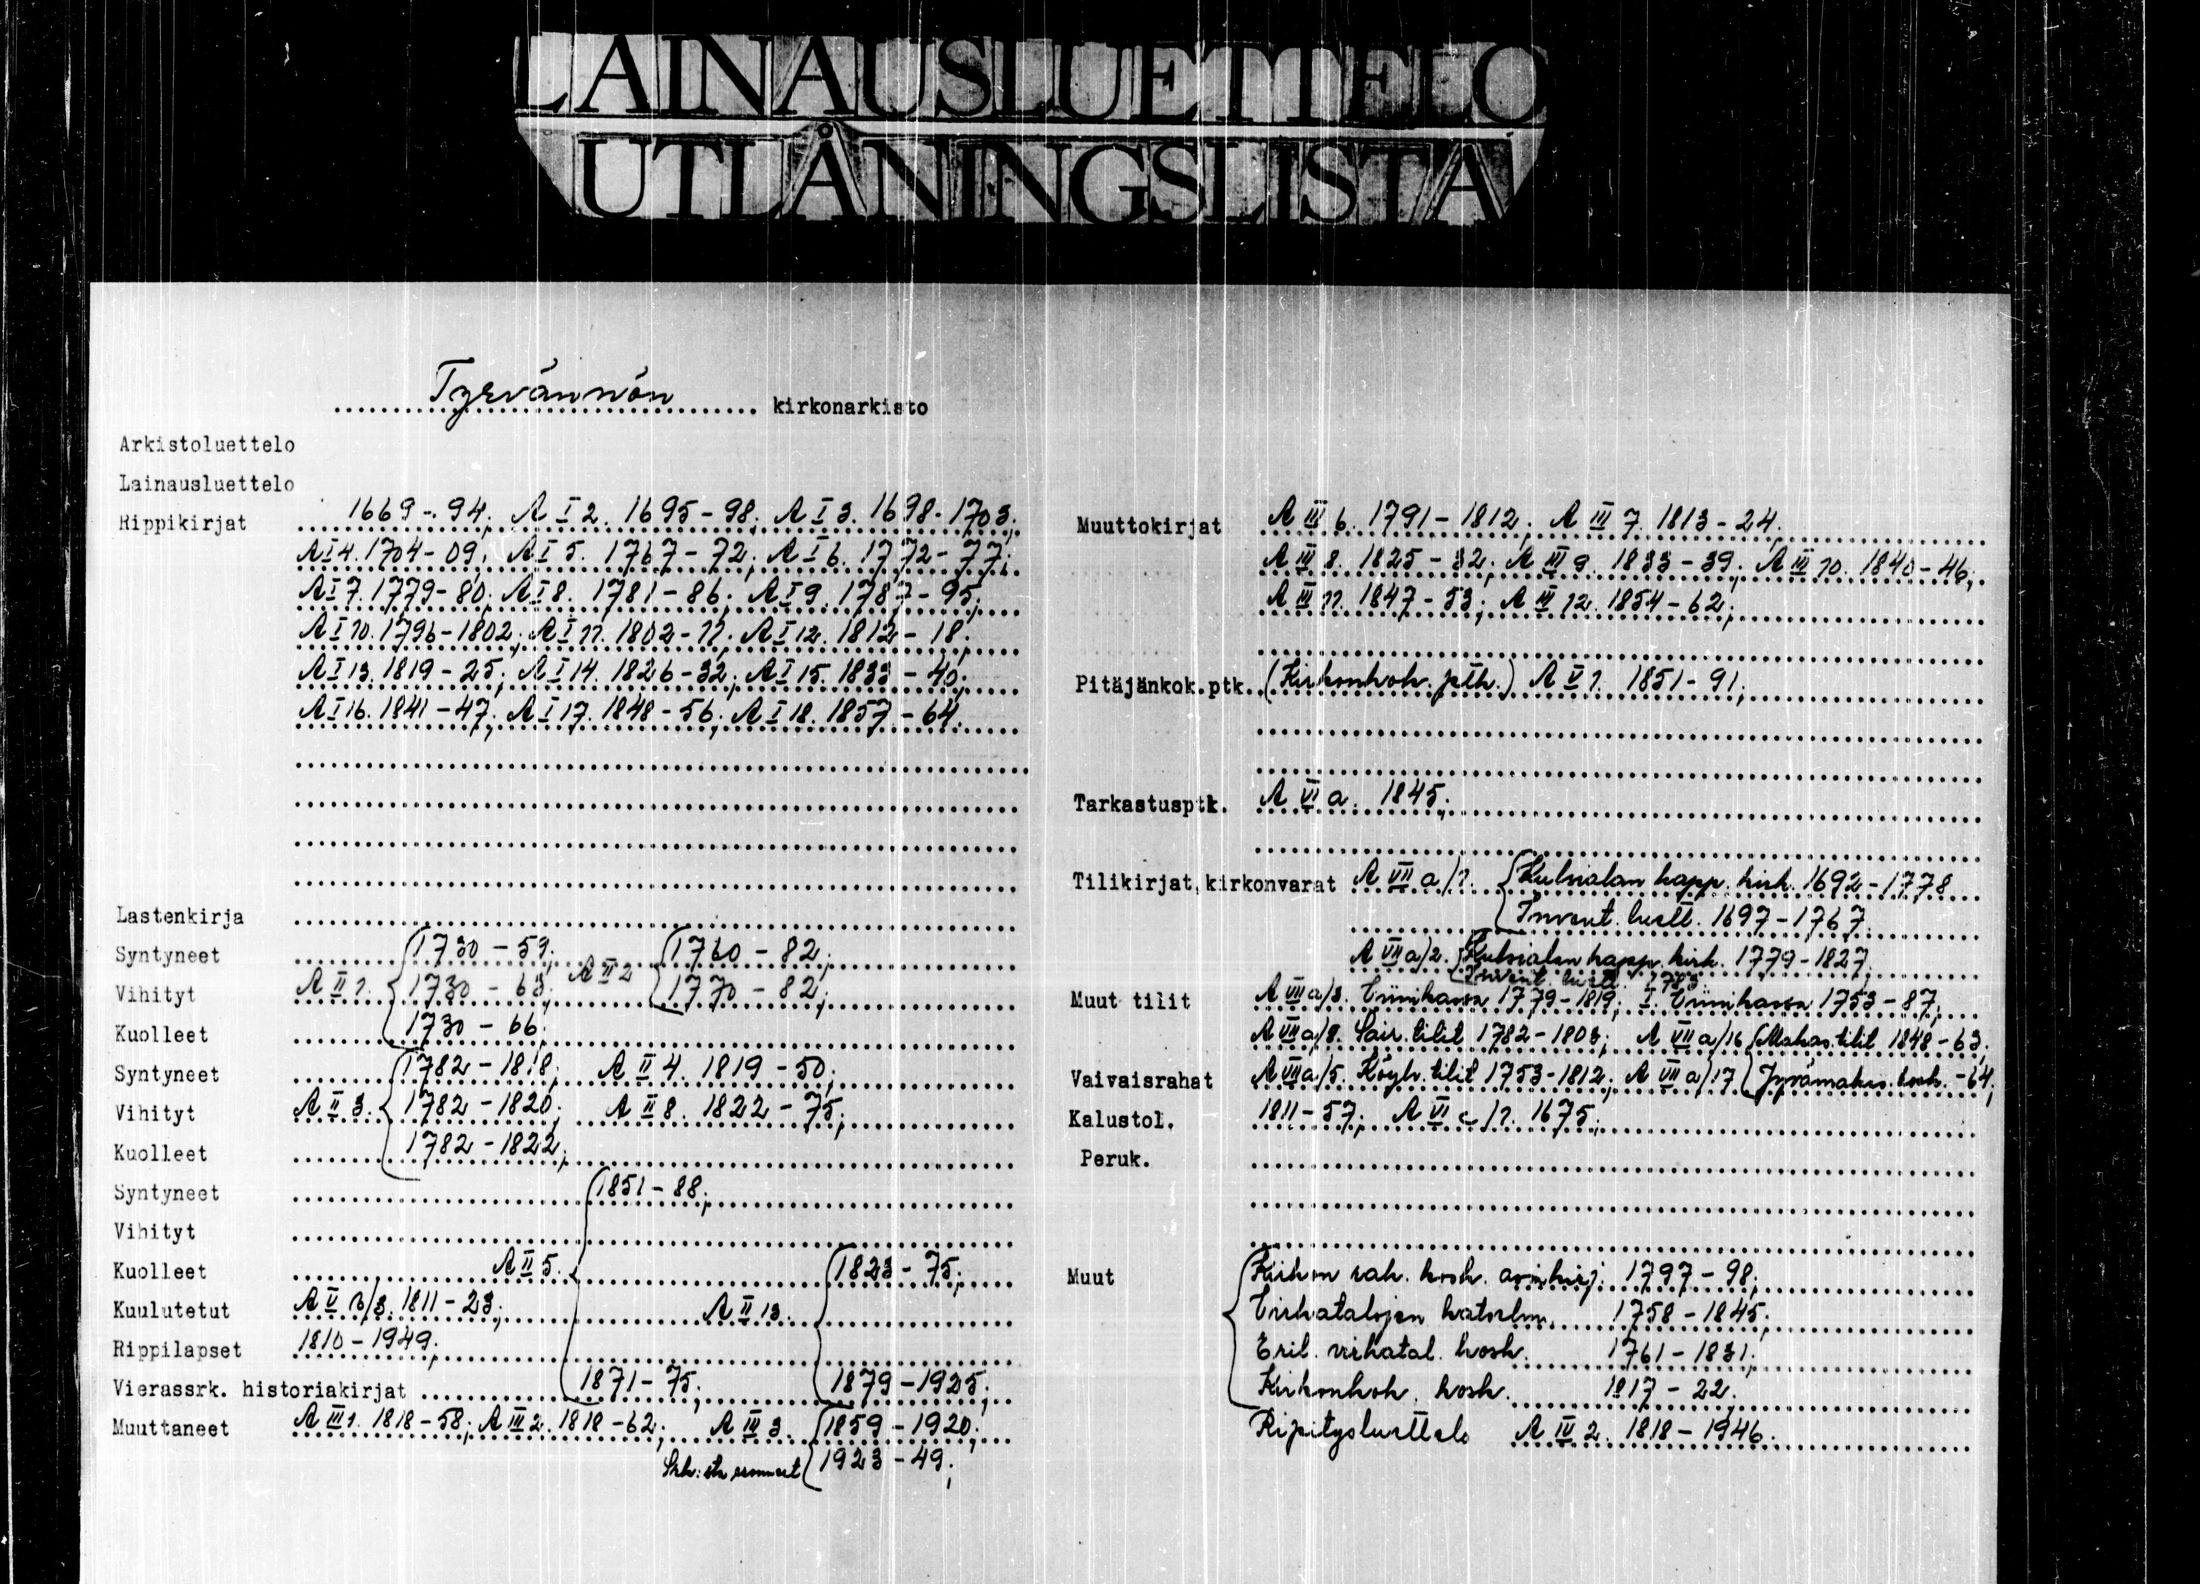 LAINAUSLUETTELO
UTLÅNINGSLISTA
Tyrvännön kirkonarkisto
Arkistoluettelo
Lainausluettelo
Rippikirjat 1669-94; A I 2. 1695-98; A I 3. 1698-1703;
A I 4. 1704-09; A I 5. 1767-72; A I 6. 1772-77;
A I 7. 1779-80; A I 8. 1781-86; A I 9. 1787-95;
A I 10. 1796-1802; A I 11. 1802-11; A I 12. 1812-18;
A I 13. 1819-25; A I 14. 1826-32; A I 15. 1833-40;
A I 16. 1841-47; A I 17. 1848-56; A I 18. 1857-64.
Lastenkirja
Syntyneet 1730-59; 1760-82;
Vihityt A II 1. 1730-63; A II 2 1770-82;
Kuolleet 1730-66;
Syntyneet 1782-1818; A II 4. 1819-50;
Vihityt A II 3. 1782-1820; A II 8. 1822-75;
Kuolleet 1782-1822;
Syntyneet 1851-88;
Vihityt
Kuolleet A II 5. 1823-75;
Kuulutetut A V B/3. 1811-23; A II 13.
Rippilapset 1810-1949;
Vierassrk. historiakirjat 1871-75; 1879-1925;
Muuttaneet A III 1. 1818-58; A III 2. 1818-62; A III 3. 1859-1920;
1923-49;
Muuttokirjat A III 6. 1791-1812; A III 7. 1813-24;
A III 8. 1825-32; A III 9. 1833-39; A III 10. 1840-46;
A III 11. 1847-53; A III 12. 1854-62;
Pitäjänkok.ptk. (Kirkonkok. ptk.) A V 1. 1851-91;
Tarkastusptk. A VI a. 1845;
Tilikirjat, kirkonvarat A VII a/1. Kulsialan kapp. kirk. 1692-1778
Invent. luett. 1697-1767.
A VII a/2. Kulsialan kapp. kirk. 1779-1827
Invent. luett. 1783
Muut tilit A VII a/3. 1779-1819; I. 1753-87;
A VII a/8. Sair. tilit 1782-1803; A VII a/16 Makas. tilit 1848-63;
Vaivaisrahat A VII a/5. Köyh. tilit 1753-1812; A VII a/17 Jyvämakas. kosk. -64;
Kalustol. 1811-57; A VI c/1. 1675;
Peruk.
Muut Kirkon rah. kosk. asiakirj. 1797-98;
Virkatalojen katselm. 1758-1845;
Eril. virkatal. kosk. 1761-1831;
Kirkonkok. kosk. 1817-22.
Ripitysluettelo A IV 2. 1818-1946.